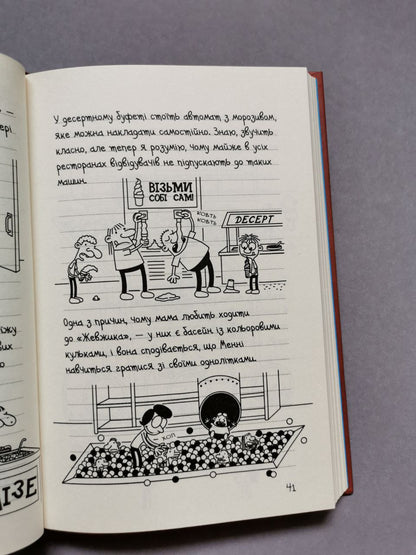 У десертному буфеті стоїть автомат з морозивом,
яке можна накладати самостійно. Знаю, звучить
класно, але тепер я розумію, чому майже в усіх
ресторанах відвідувачів не підпускають до таких
машин.
ВІЗЬМИ
СОБІ САМ!
КОВТЬ
КОВТЬ
ДЕСЕРТ
Одна з причин, чому мама любить ходити
до «Жевжика», — у них є басейн із кольоровими
кульками, і вона сподівається, що Менні
навчиться гратися зі своїми однолітками.
ХОП
41